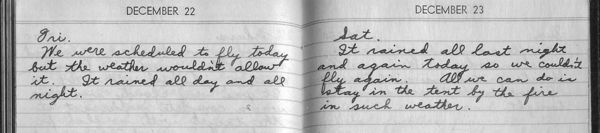 DECEMBER 22
Fri.
We were scheduled to fly today
but the weather wouldn't allow
it. It rained all day and all
night.
DECEMBER 23
Sat.
It rained all last night
and again today so we couldn't
fly again. All we can do is
stay in the tent by the fire
in such weather.